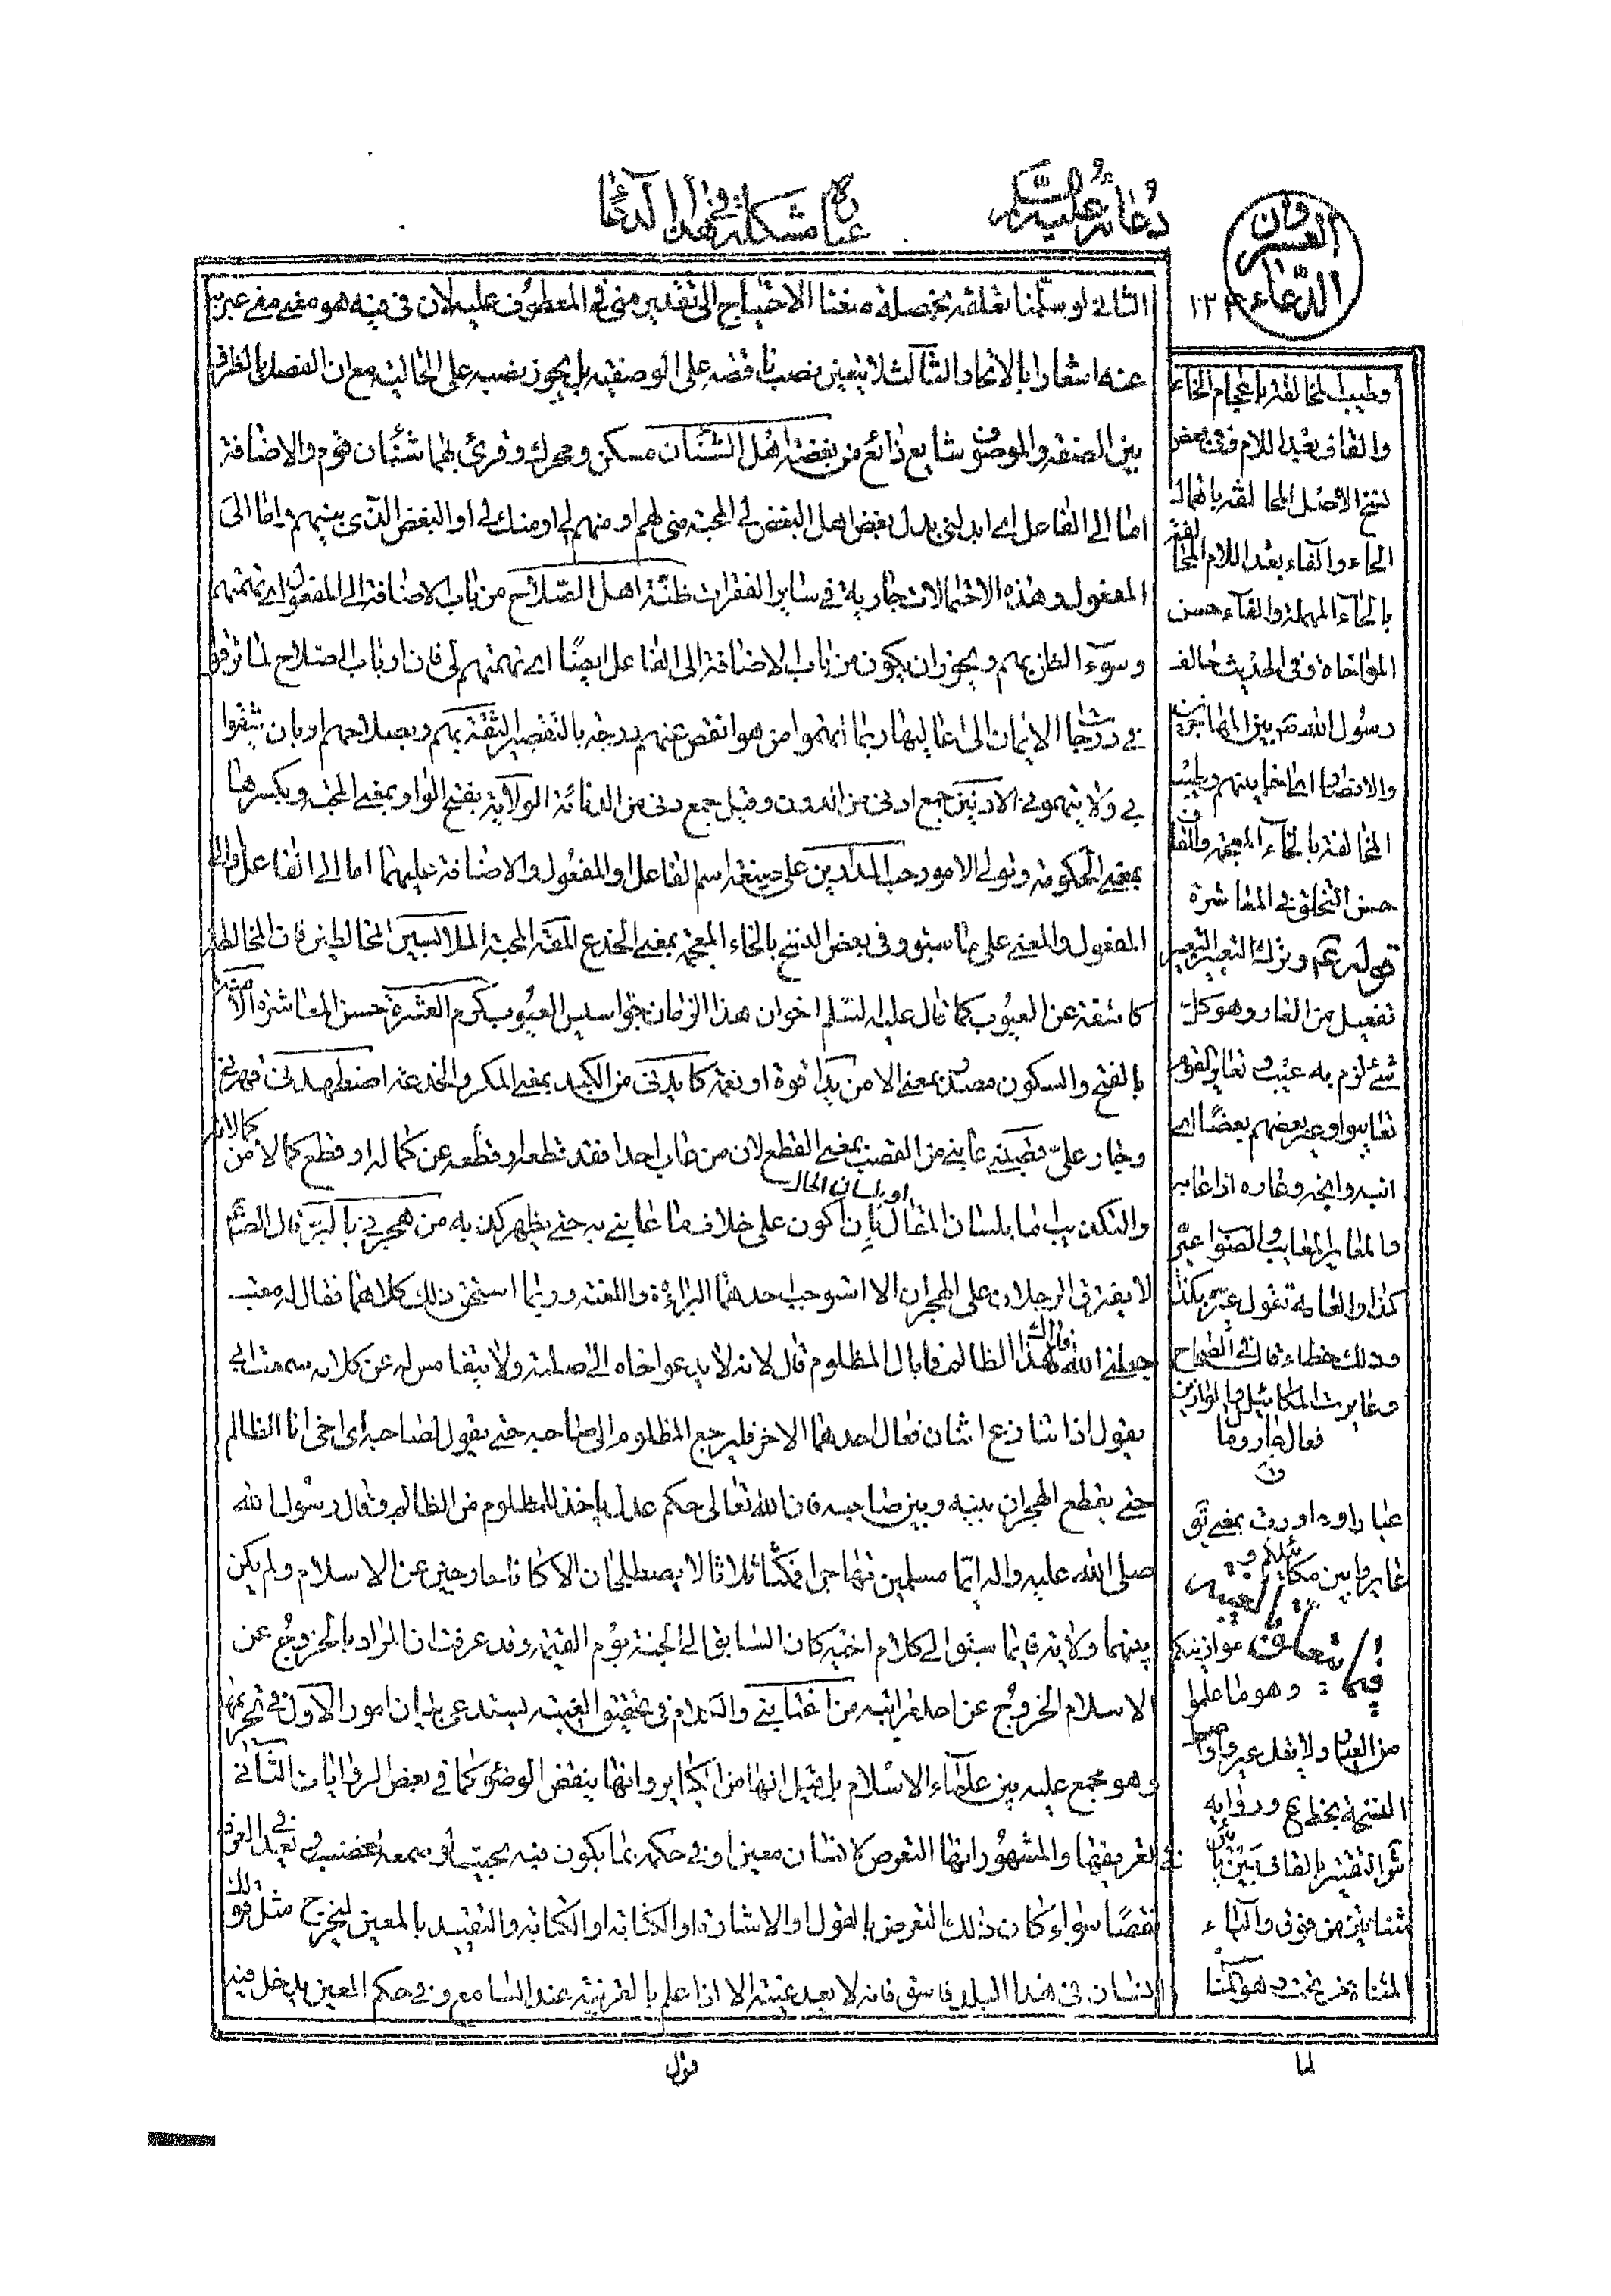 العشرون
الدعاء
دعائه عليه السلم
عبارة مشكلة في هذا الدعاء
الثاني لو سلمنا تعلقه بخصلة منعنا الاحتياج الى تقدير مني في المعطوف عليه لان في فيه هو معنى مني عبر به
عنه اشعارا بالاتحاد الثالث لا يتعين نصب ناقصه على الوصفية بل يجوز نصبه على الحالية مع ان الفصل بالظرف
بين الصفة والموصوف شايع ذائع من بغضة اهل الشنان مسكن ومحرك وقرئ بهما شنان قوم والاضافة
اما الى الفاعل اي ابدلني بدل بغض اهل البغض لي المحبة مني لهم او منهم لي او منك لي او البغض الذي بينهم واما الى
المفعول وهذه الاحتمالات جارية في ساير الفقرات ظنة اهل الصلاح من باب الاضافة الى المفعول اي تهمتهم
وسوء الظن بهم ويجوز ان يكون من باب الاضافة الى الفاعل ايضا اي تهمتهم لي فان ارباب الصلاح لما ترقوا
في درجات الايمان الى اعاليها ربما اتهموا من هو انقص عنهم درجة بالتقصير الثقة بهم وبصلاحهم او بان يثقوا
بي ولا يتهموني الادنين جمع ادنى من الدون وقيل جمع دنى من الدنائة الولاية بفتح الواو بمعنى المحبة وبكسرها
بمعنى الحكومة وتولي الامور حب المدارين على صيغة اسم الفاعل او المفعول والاضافة عليهما اما الى الفاعل او الى
المفعول والمعنى على ما سبق وفي بعض النسخ بالخاء المعجمة بمعنى الخدع المقة المحبة الملابسين المخالطين فان المخالطة
كاشفة عن العيوب كما قال عليه السلم اخوان هذا الزمان جواسيس العيوب كرم العشرة حسن المعاشرة الامنة
بالفتح والسكون مصدر بمعنى الامن يدا قوة او نعمة كايدني من الكيد بمعنى المكر والخدعة اضطهدني قهرني
وجار علي قصبني عابني من القصب بمعنى القطع لان من عاب احدا فقد قطعه او قطعه عن كماله او قطع كمالا من كمالاته
والتكذيب اما بلسان المقال او بلسان الحال بان اكون على خلاف ما عابني به حتى يظهر كذبه من هجرني بالبر قال الصادق
لا يفترق الرجلان على الهجران الا استوجب احدهما البرائة واللعنة وربما استحق ذلك كلاهما فقال له معتب
جعلني الله فداك هذا الظالم فما بال المظلوم قال لانه لا يدعو اخاه الى صلته ولا يتغامس له عن كلامه سمعت ابي
يقول اذا تنازع اثنان فعال احدهما الاخر فليرجع المظلوم الى صاحبه حتى يقول لصاحبه اى اخي انا الظالم
حتى يقطع الهجران بينه وبين صاحبه فان الله تعالى حكم عدل ياخذ للمظلوم من الظالم وقال رسول الله
صلى الله عليه واله ايما مسلمين تهاجرا فمكثا ثلاثا لا يصطلحان الا كانا خارجين عن الاسلام ولم يكن
بينهما ولاية فايما سبق الى كلام اخيه كان السابق الى الجنة يوم القيمة وقد عرفت ان المراد بالخروج عن
الاسلام الخروج عن احد مراتبه من اغتابني والكلام في تحقيق الغيبة يستدعي بيان امور الاول في تحريمها
وهو مجمع عليه بين علماء الاسلام بل قيل انها من الكباير وانها ينقض الوضوء كما في بعض الروايات الثاني
في تعريفها والمشهور انها التعرض لانسان معين او في حكمه بما يكون فيه بحيث لو سمعه لغضب في بعيد العرف
نقصا سواء كان ذلك بالتعرض بالقول او الاشارة او الكناية او الكتابة والتقييد بالمعين ليخرج مثل قولك
انسان في هذا البلد فاسق فانه لا يعد غيبة الا اذا علم بالقرينة عند السامع وفي حكم المعين يدخل فيه
قول
وطيب المخالقة باعجام الخاء
والقاف بعد اللام وفي بعض
نسخ الاصل المحالفة باهمال
الحاء والفاء بعد اللام المحالفة
بالحاء المهملة والفاء حسن
المواخاة وفي الحديث حالف
رسول الله ص بين المهاجرين
والانصار اي اخا بينهم وطيب
المخالقة بالخاء المعجمة والقاف
حسن التخلق في المعاشرة
قوله ع وترك التعيير التعيير
تفعيل من العار وهو كل
شئ لزم به عيب وتعاير القوم
تعايبوا وعير بعضهم بعضا اي
فالمعاير المعايب والصواب عيره
كذا والعامة تقول عيره بكذا
وذلك خطاء قال في الصحاح
وعايرت المكائيل والموازين
عيارا وعاورت بمعنى يق
عايروا بين مكائيلكم و
موازينكم
فيما يتعلق بالغيبة
وهو ما علموا
من العيار ولا يقل عيروا
النسخة بخط ع ورواية
س والتقتير بالقاف بين تائين
مثناتين من فوق والياء
المثناة من تحت وهو هنا
لما